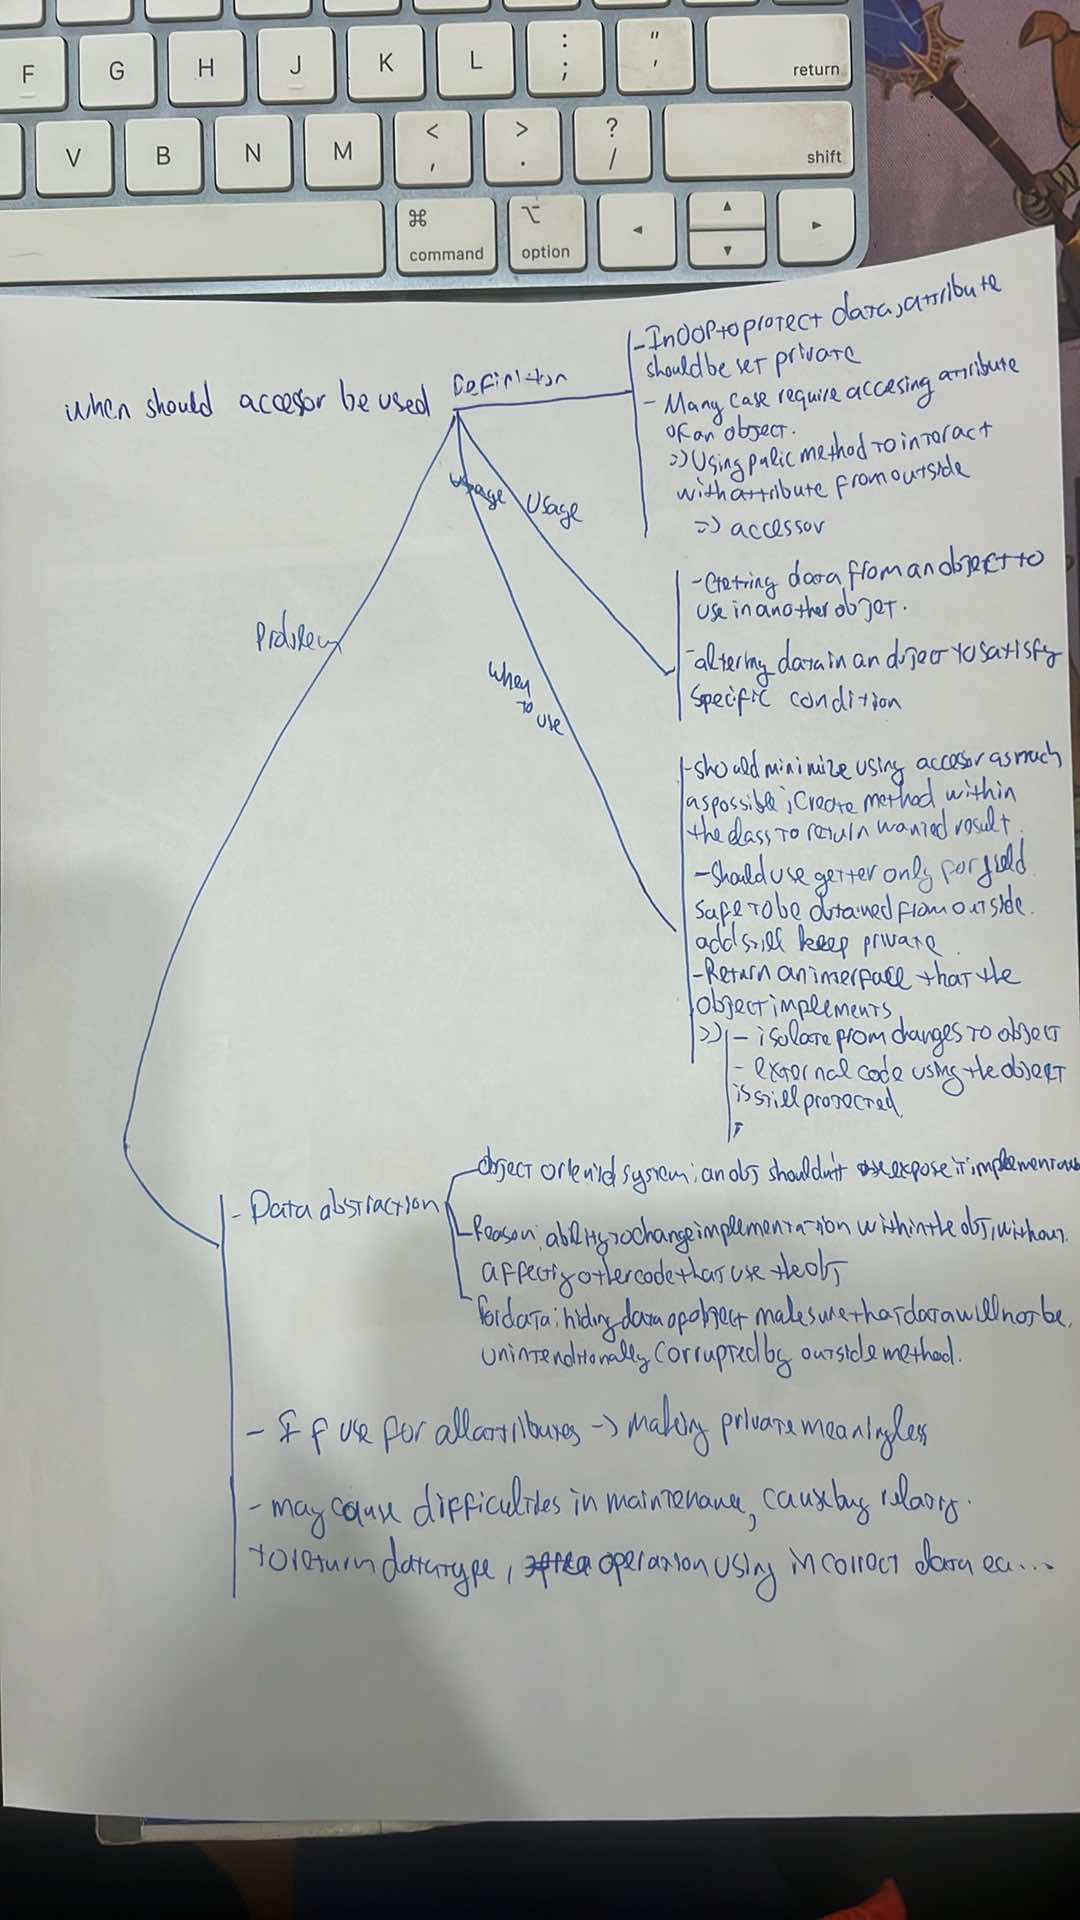 F G H J K L : ; " ' return
V B N M < , > . ? / shift
⌘ command ⌥ option ◂ ▴ ▾ ▸
when should accesor be used
Definition
- In OOP to protect data, attribute
should be set private
- Many case require accesing attribute
of an object.
=> Using public method to interact
with attribute from outside
=> accessor
Usage
- Getting data from an object to
use in another objet.
- altering data in an object to satisfy
specific condition
when
to
use
- should minimize using accesor as much
as possible; Create method within
the class to return wanted result.
- Should use getter only for field
safe to be obtained from outside.
add still keep private
- Return an interface that the
object implements
=> - isolate from changes to object
- external code using the object
is still protected
Problem
- Data abstraction
object oriented system: an obj shouldn't expose it
Reason: ability to change implementation within the obj, without
affecting other code that use the obj
for data: hiding data of object make sure that data will not be
unintenditionally corrupted by outside method.
- If use for all attributes -> making private meaningless
- may cause difficulties in maintenance, cause bug
to return data type, operation using incorrect data